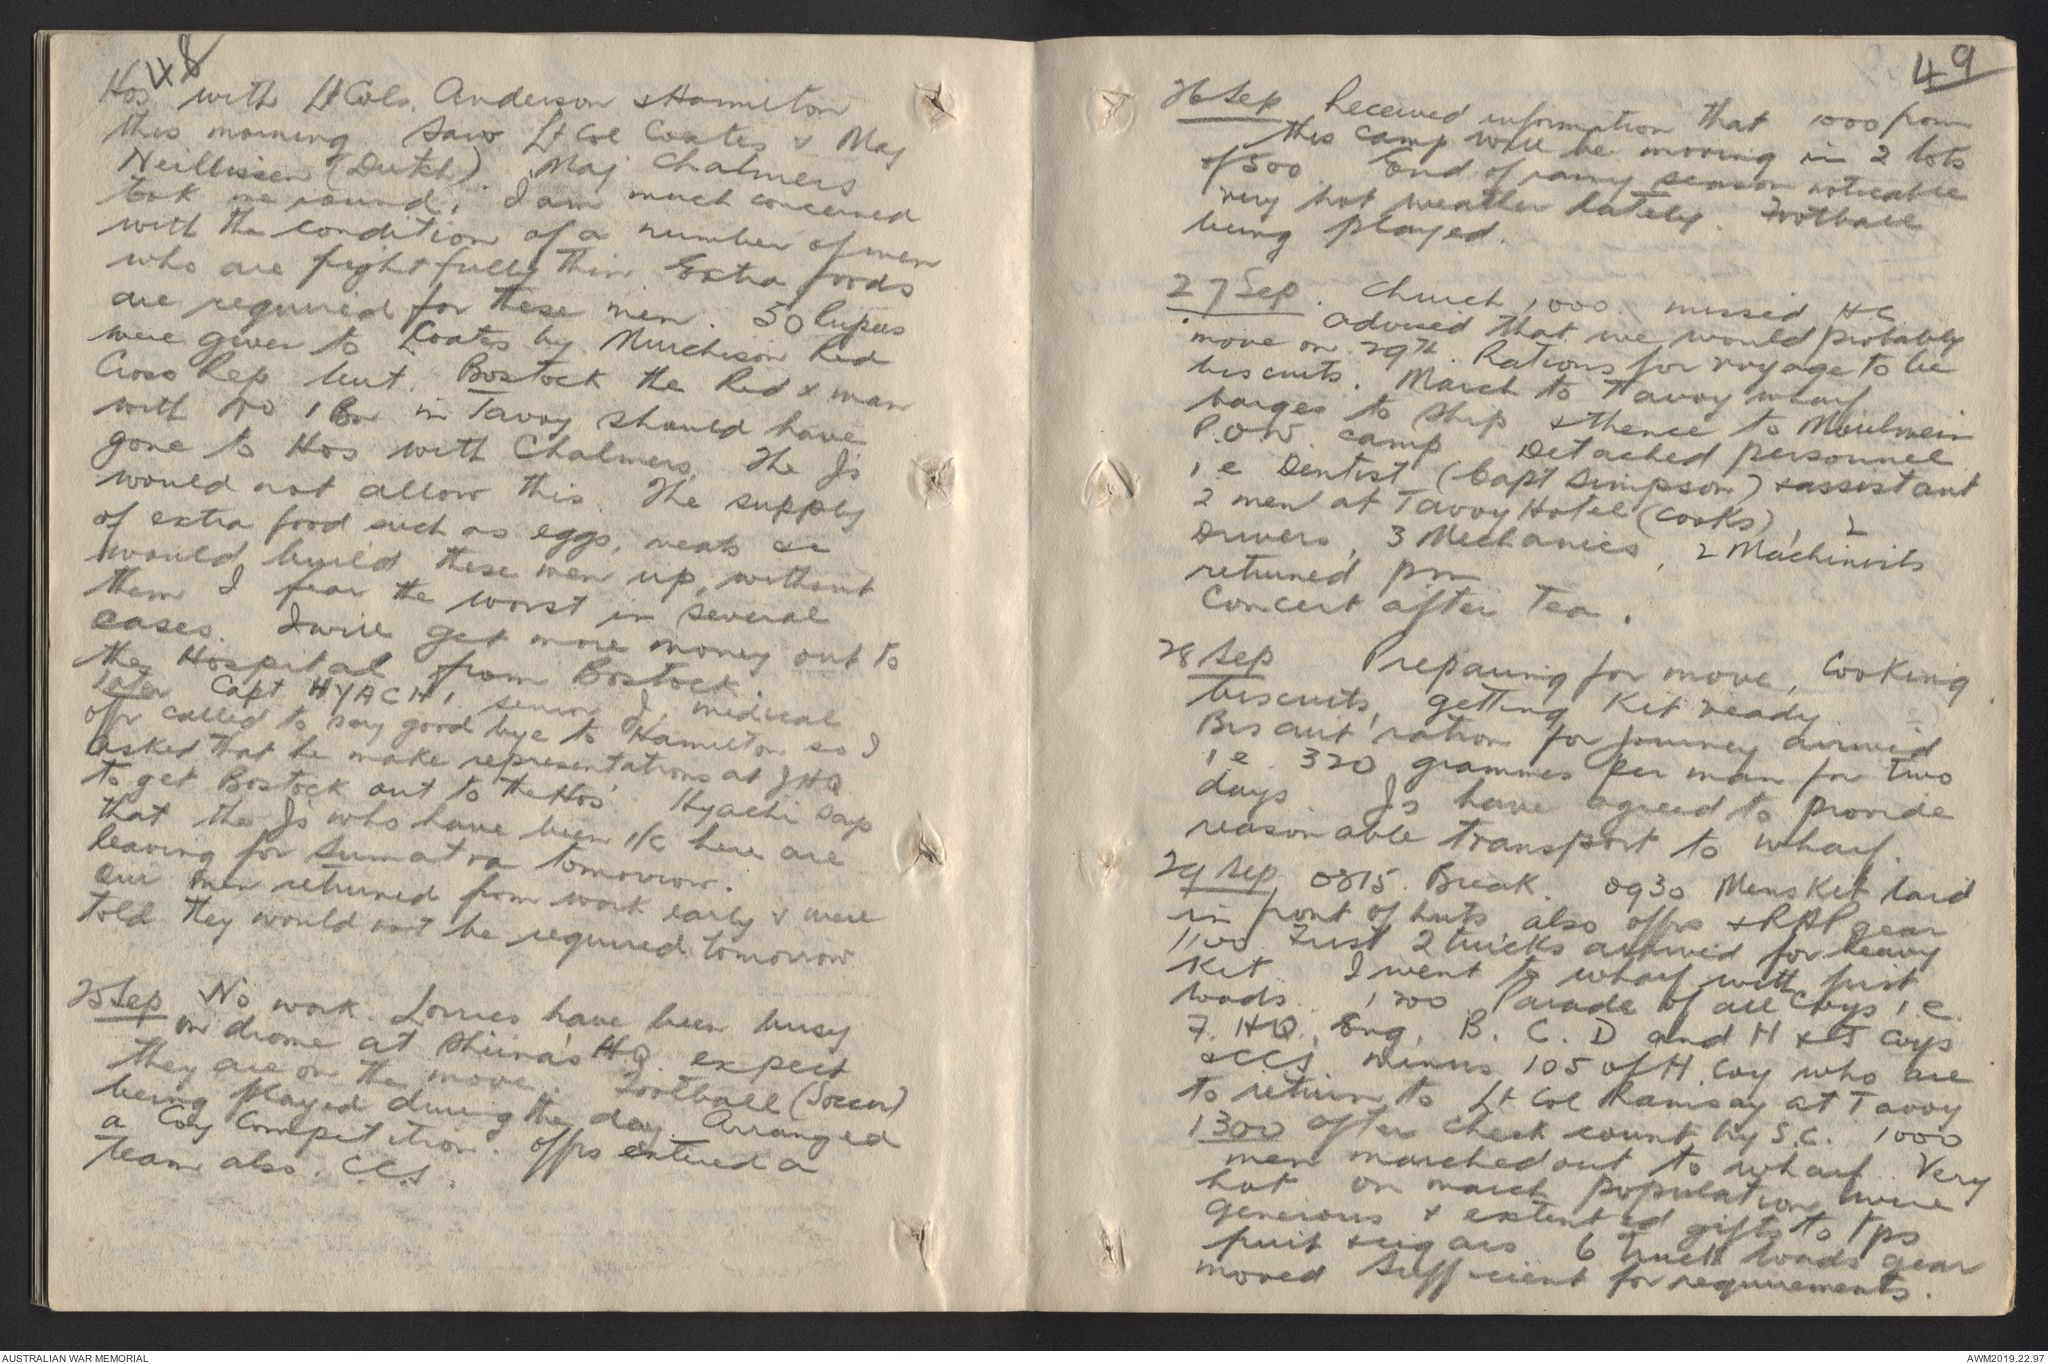 48
Hos with Lt Cols. Anderson & Hamilton
this morning saw Lt Col Coates & Maj
Neillissen (Dutch). Maj Chalmers
took me round. I am much concerned
with the condition of a number of men
who are frightfully thin Extra foods
are required for these men. 50 Rupees
were given to Coates by Murchison Red
Cross Rep but. Bostock the Red x man
with No 1 Bn in Tavoy should have
gone to Hos with Chalmers. The Js
would not allow this. The supply
of extra food such as eggs, meats &c
would build these men up, without
them I fear the worst in several
cases. I will get more money out to
the Hospital from Bostock.
Later Capt HYACHI senior J. medical
offr called to say good bye to Hamilton so I
asked that he make representations at JHQ
to get Bostock out to the Hos. Hyachi says
that the Js who have been i/c here are
leaving for Sumatra tomorrow.
Our men returned from work early & were
told they would not be required tomorrow
25 Sep No work. Lorries have been busy
on drome at Shiina's HQ. expect
they are on the move. Football (Soccer)
being played during the day. Arranged
a Coy Competition. Offrs entered a
team also. C.C.S.
49
26 Sep Received information that 1000 from
this camp will be moving in 2 lots
of 500. End of rainy season noticable
very hot weather lately. Football
being played.
27 Sep. Church 1000. missed HC
advised that we would probably
move on 29th. Rations for voyage to be
biscuits. March to Tavoy wharf
barges to ship & thence to Moulmein
P.O.W. camp Detached personnel
i e Dentist (Capt Simpson) & assistant
2 men at Tavoy Hotel (cooks), 2
Drivers, 3 Mechanics, 2 Machinists
returned pm
Concert after Tea.
28 Sep Preparing for move, Cooking
biscuits, getting Kit ready.
Biscuit ration for journey arrived
i e. 320 grammes per man for two
days. Js have agreed to provide
reasonable transport to wharf.
29 Sep 0815. Break. 0930 Mens Kit laid
in front of huts also offrs & RAP gear
1100 First 2 trucks arrived for heavy
Kit. I went to wharf with first
loads. 1200 Parade of all Coys i.e.
7. HQ, Eng, B. C. D and H & J Coys
& CCS minus 105 of H. Coy who are
to return to Lt Col Ramsay at Tavoy
1300 after check count by S.C. 1000
men marched out to wharf. Very
hot on march population were
generous & extented gifts to tps
fruit & cigars 6 truck loads gear
moved sufficient for requirements.
AUSTRALIAN WAR MEMORIAL
AWM2019.22.97